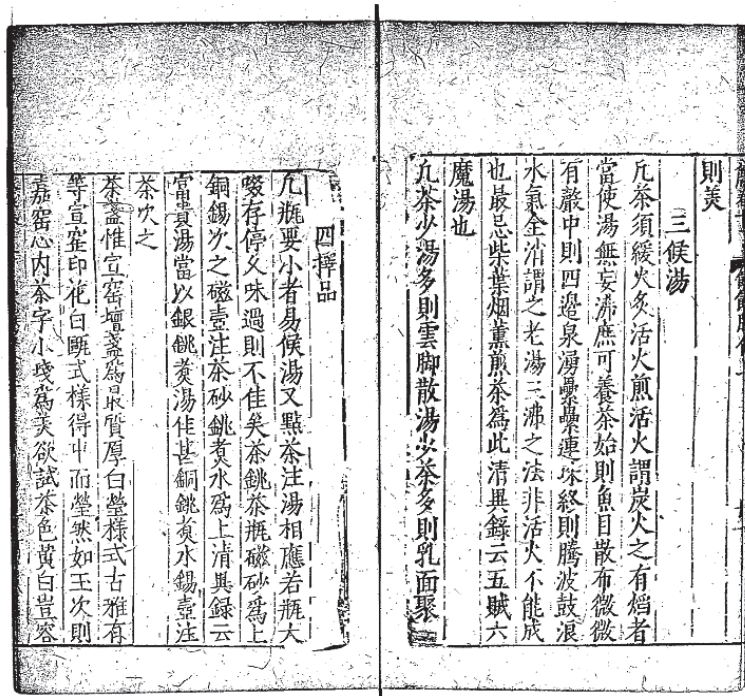 則美
三候湯
凡茶須緩火炙活火煎活火謂炭火之有焰者
當使湯無妄沸庶可養茶始則魚目散布微微
有聲中則四邊泉湧纍纍連珠終則騰波鼓浪
水氣全消謂之老湯三沸之法非活火不能成
也最忌柴葉烟薰煎茶為此清異錄云五賊六
魔湯也
凡茶少湯多則雲脚散湯少茶多則乳面聚
四擇品
凡瓶要小者易候湯又點茶注湯相應若瓶大
啜存停久味過則不佳矣茶銚茶瓶磁砂為上
銅錫次之磁壺注茶砂銚煮水為上清異錄云
富貴湯當以銀銚煮湯佳甚銅銚煮水錫壺注
茶次之
茶盞惟宣窑壇盞為最質厚白瑩樣式古雅有
等宣窑印花白甌式樣得中而瑩然如玉次則
嘉窑心内茶字小琖為美欲試茶色黄白豈容